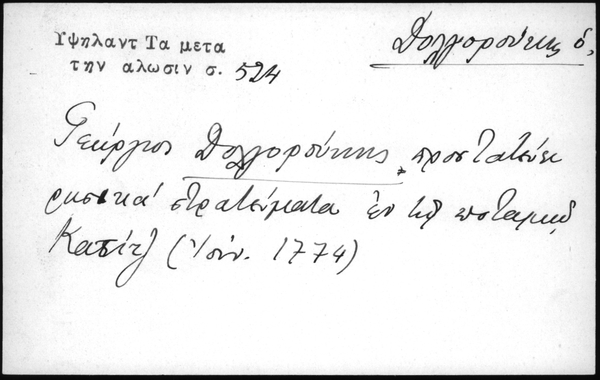 Υψηλαντ Τα μετα
την αλωσιν σ. 524
Δολγορούκης ὁ,
Γεώργιος Δολγορούκης, προστατεύει
ρωσικά στρατεύματα ἐν τῷ ποταμῷ
(Ἰούν. 1774)